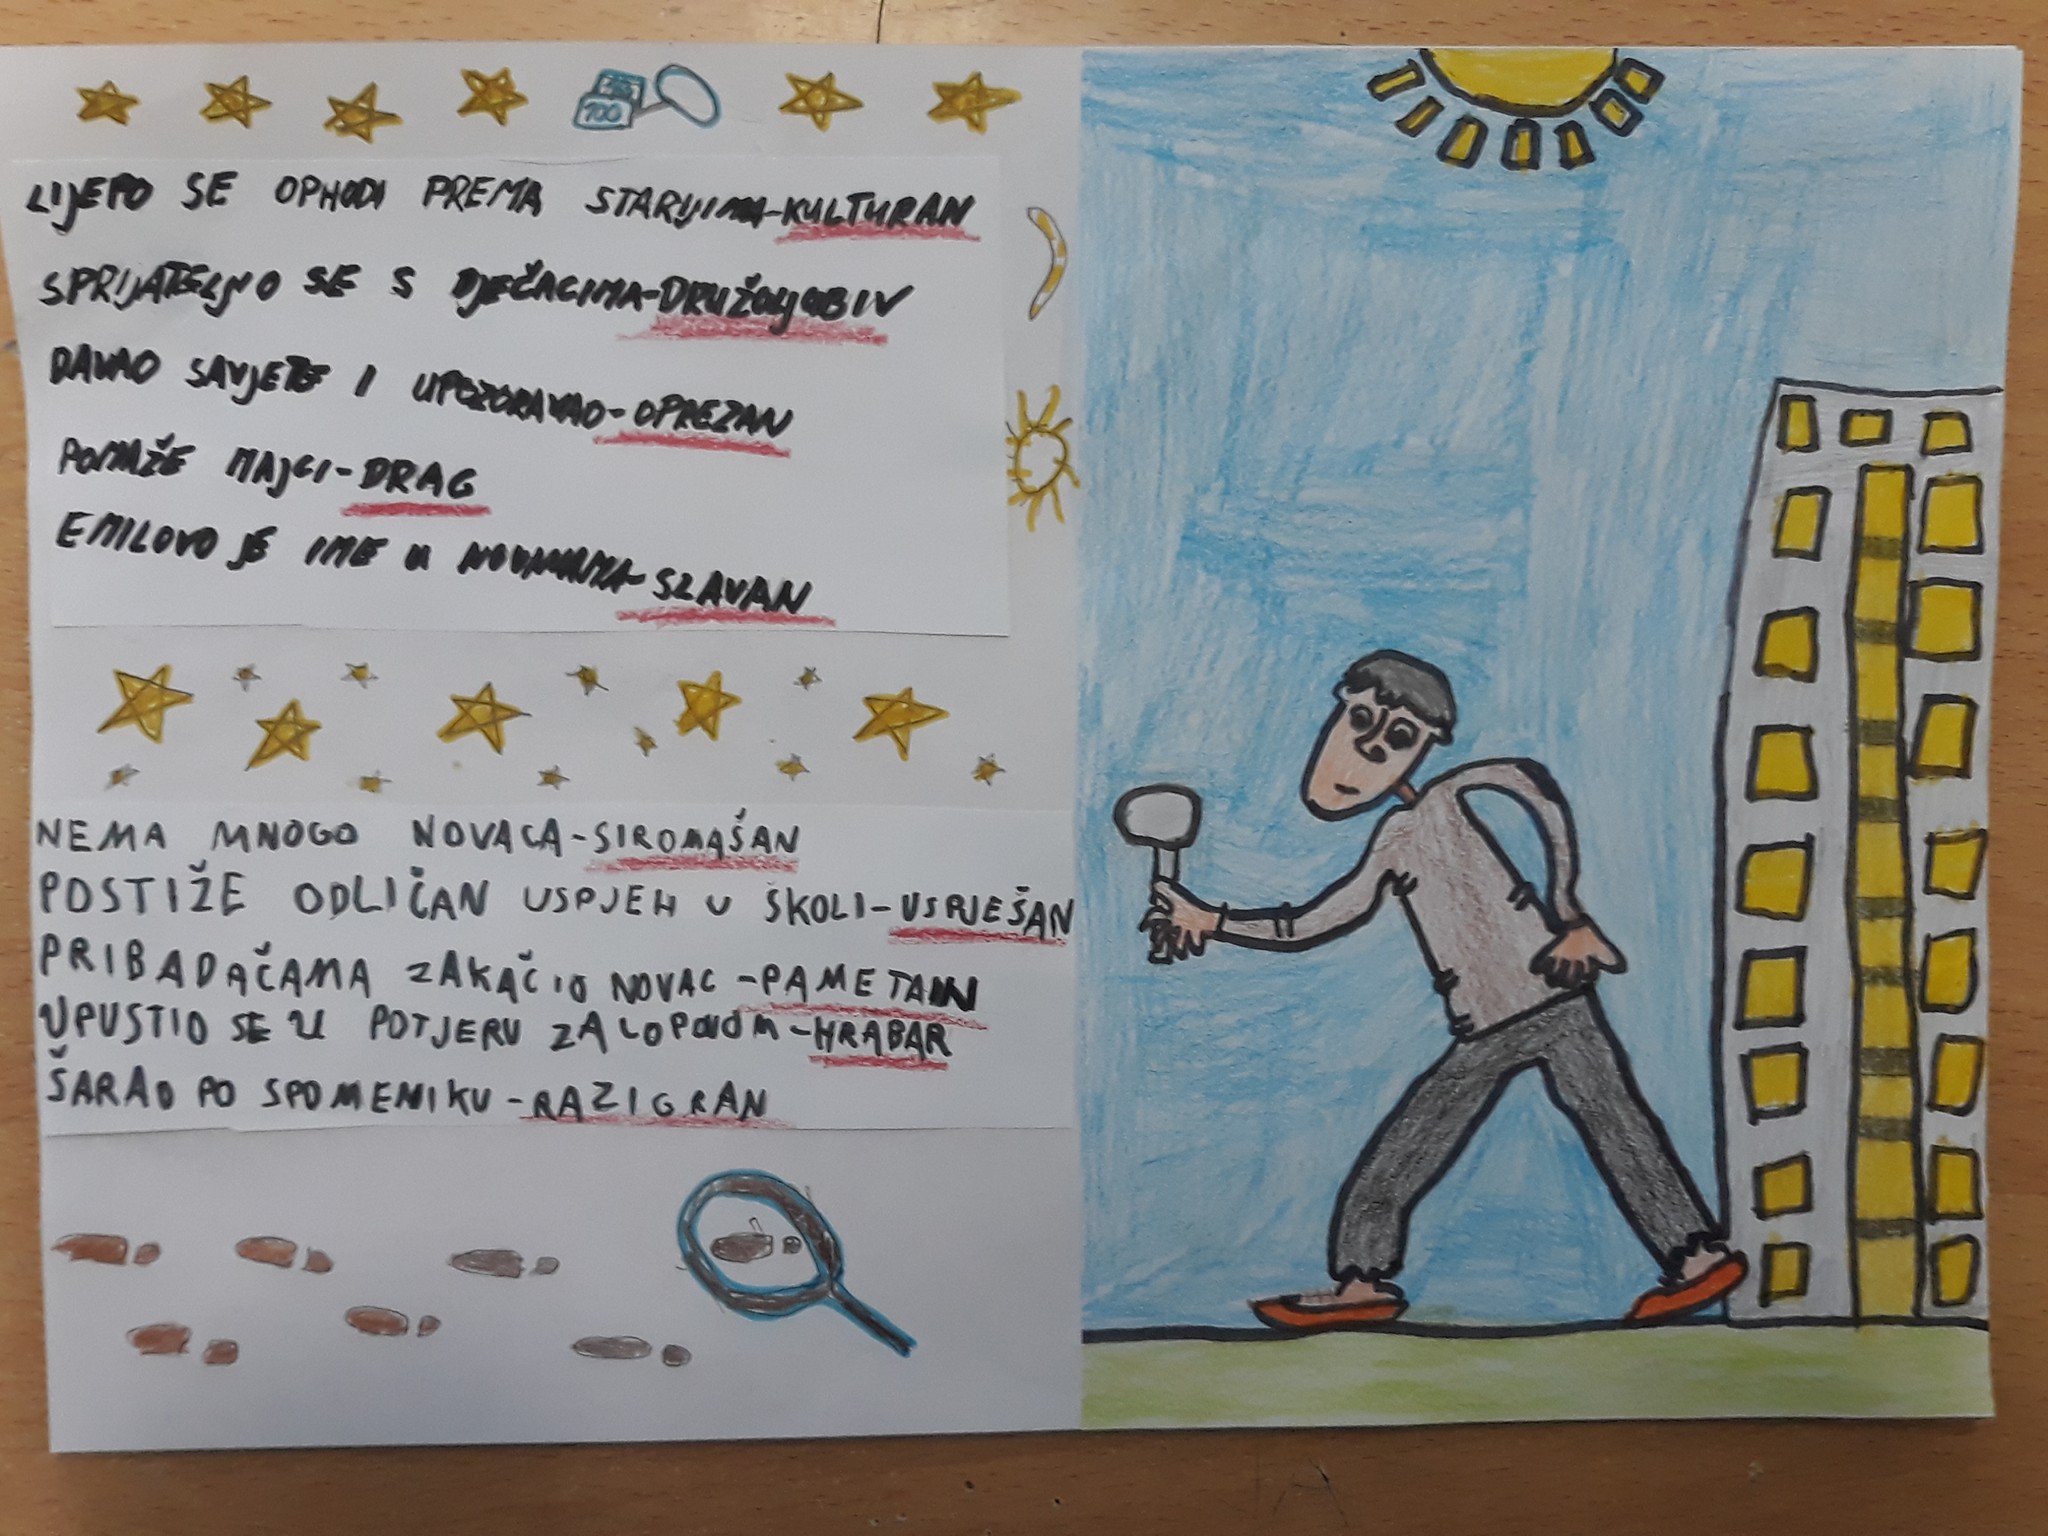 100
LIJEPO SE OPHODI PREMA STARIJIMA-KULTURAN
SPRIJATELJIO SE S DJEČACIMA-DRUŽOLJUBIV
DAVAO SAVJETE I UPOZORAVAO-OPREZAN
POMAŽE MAJCI-DRAG
EMILOVO JE IME U NOVINAMA-SLAVAN
NEMA MNOGO NOVACA-SIROMAŠAN
POSTIŽE ODLIČAN USPJEH U ŠKOLI-USPJEŠAN
PRIBADAČAMA ZAKAČIO NOVAC-PAMETAN
UPUSTIO SE U POTJERU ZA LOPOVOM-HRABAR
ŠARAO PO SPOMENIKU-RAZIGRAN